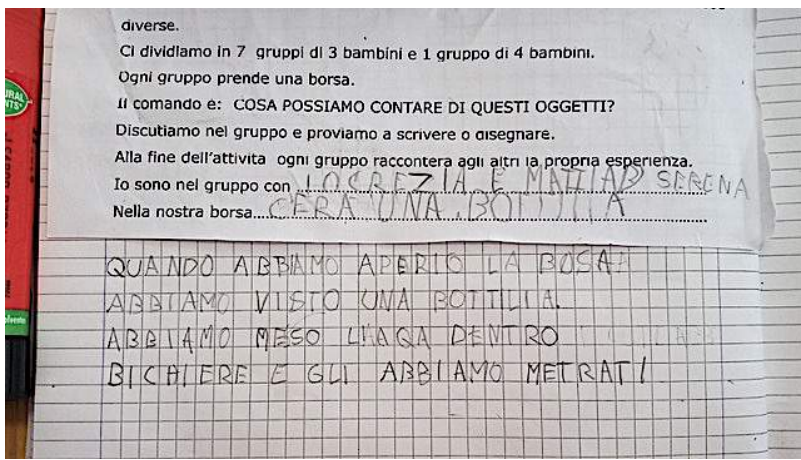 diverse.
Ci dividiamo in 7 gruppi di 3 bambini e 1 gruppo di 4 bambini.
Ogni gruppo prende una borsa.
Il comando e: COSA POSSIAMO CONTARE DI QUESTI OGGETTI?
Discutiamo nel gruppo e proviamo a scrivere o disegnare.
Alla fine dell'attivita ogni gruppo raccontera agli altri la propria esperienza.
Io sono nel gruppo con LOCREZIA E MATTIAB SERENA
Nella nostra borsa CERA UNA BOTTILIA
QUANDO ABBIAMO APERTO LA BOSA
ABBIAMO VISTO UNA BOTTILIA.
ABBIAMO MESO L'AQA DENTRO
BICHIERE E GLI ABBIAMO METRATI